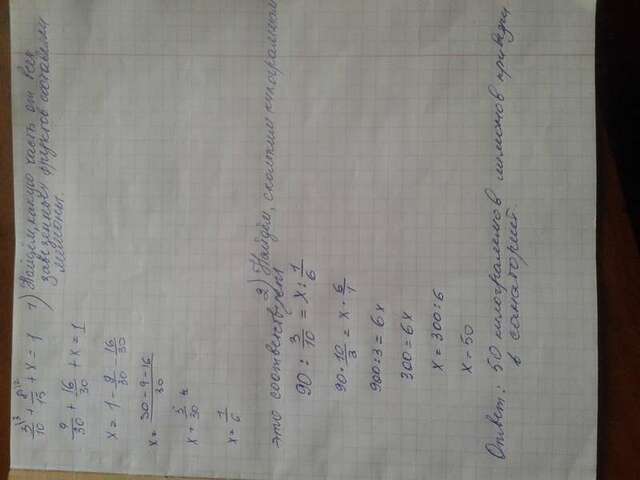 1) Найдём, какую часть от всех
завезённых фруктов составляли
лимоны.
3/10 + 8/15 + x = 1
9/30 + 16/30 + x = 1
x = 1 - 9/30 - 16/30
x = 30 - 9 - 16 / 30
x = 5/30
x = 1/6
2) Найдём, скольким килограммам
это соответствует
90 : 3/10 = x : 1/6
90 · 10/3 = x · 6/1
900 : 3 = 6x
300 = 6x
x = 300 : 6
x = 50
Ответ: 50 килограммов лимонов привезли
в санаторий.